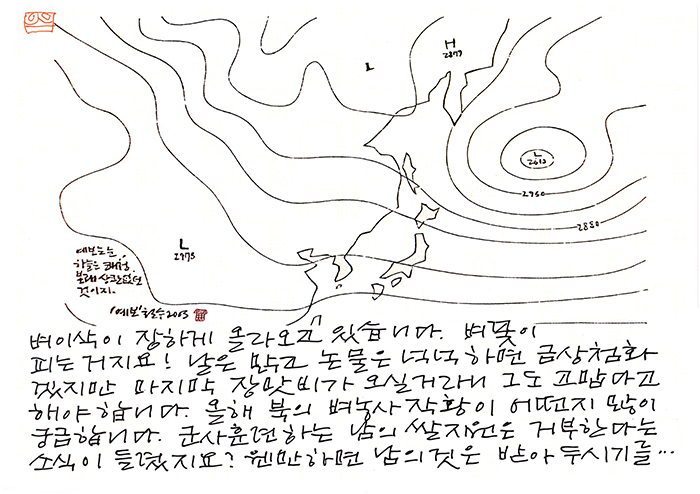 L
H
2877
L
2610
2750
2880
L
2975
예보는 눈,
하늘은 쾌청.
본래 상관없던
것이지.
'예보' 철수 2003
벼이삭이 장하게 올라오고 있습니다. 벼꽃이
피는거지요! 날은 맑고 논물은 넉넉하면 금상첨화
겠지만 마지막 장맛비가 오실거라니 그도 고맙다고
해야합니다. 올해 북의 벼농사 작황이 어떤지 많이
궁금합니다. 군사훈련하는 남의 쌀지원은 거부한다는
소식이 들렸지요? 웬만하면 남의 것은 받아두시기를...